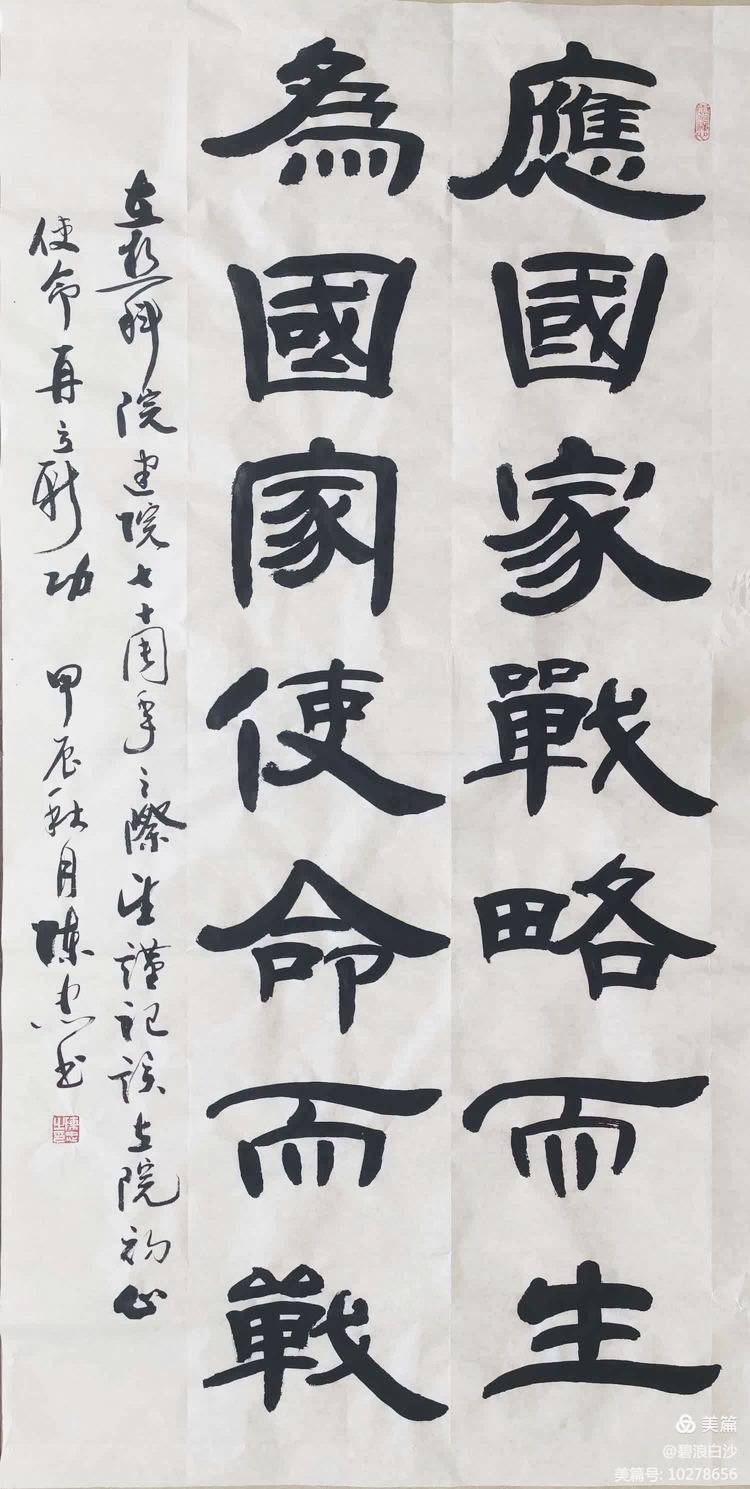 應國家戰略而生
為國家使命而戰
在热科院建院七十周年之際望謹記院初心
使命再立新功 甲辰秋月陳忠书
美篇
@碧浪白沙
美篇号: 10278656